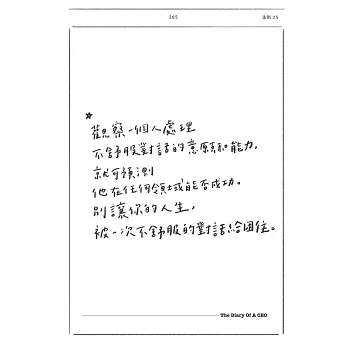 365
法則 25
觀察一個人處理
不舒服對話的意願和能力,
就可預測
他在任何領域能否成功。
別讓你的人生,
被一次不舒服的對話給困住。
The Diary Of A CEO